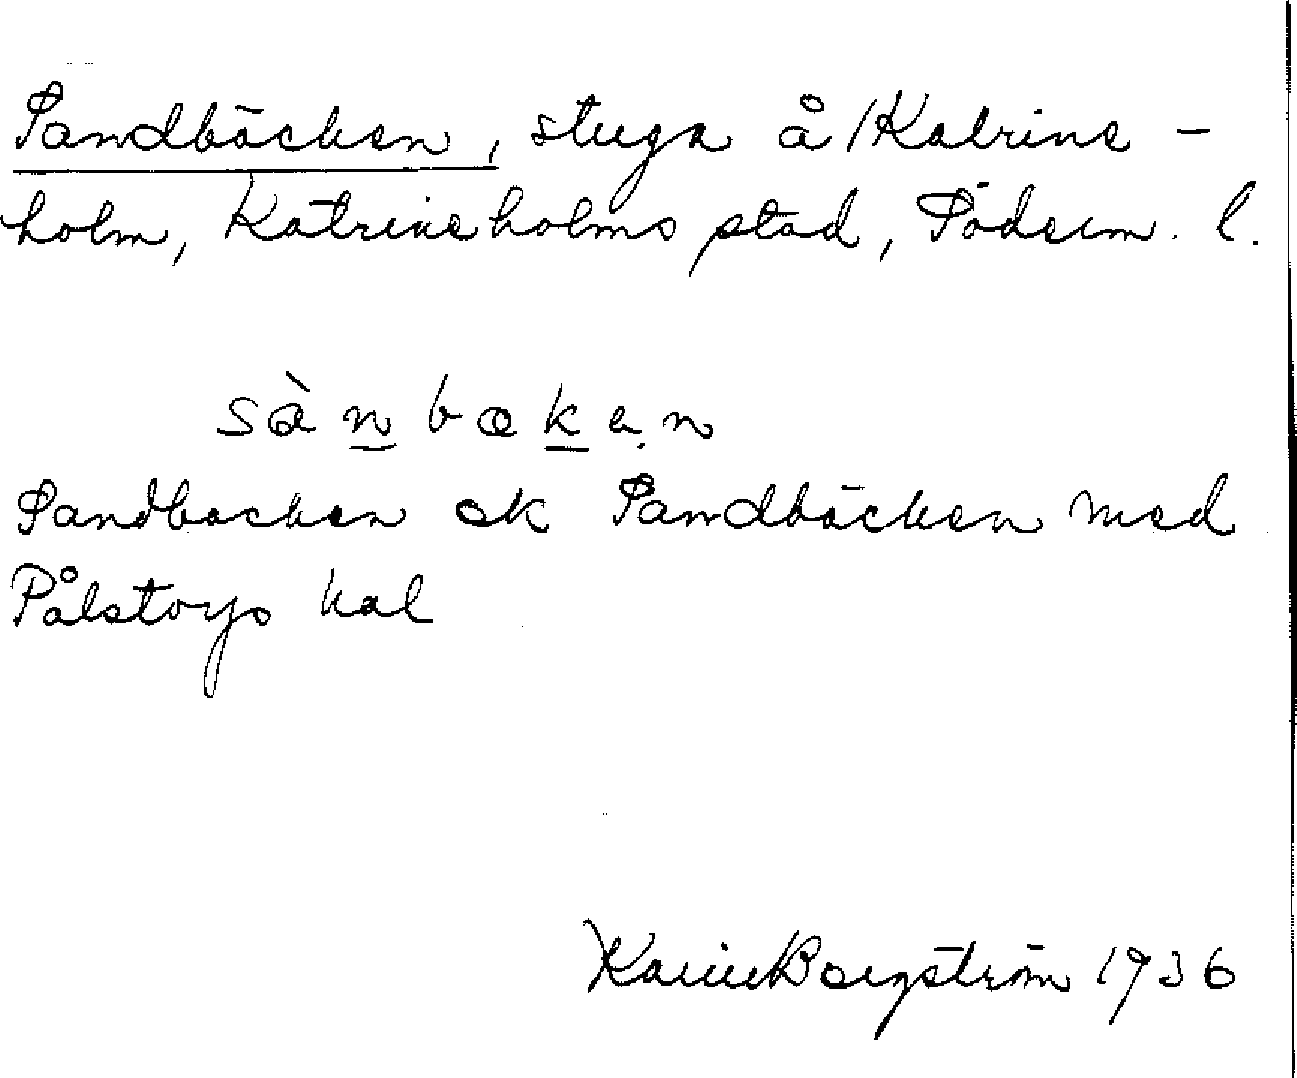 Sandbäcken, stuga å Katrine-
holm, Katrineholms stad, Söderm. l.
sàn bakan
Sandbacken ek Sandbäcken med
Pålstorps kal
Karin Borgström 1936